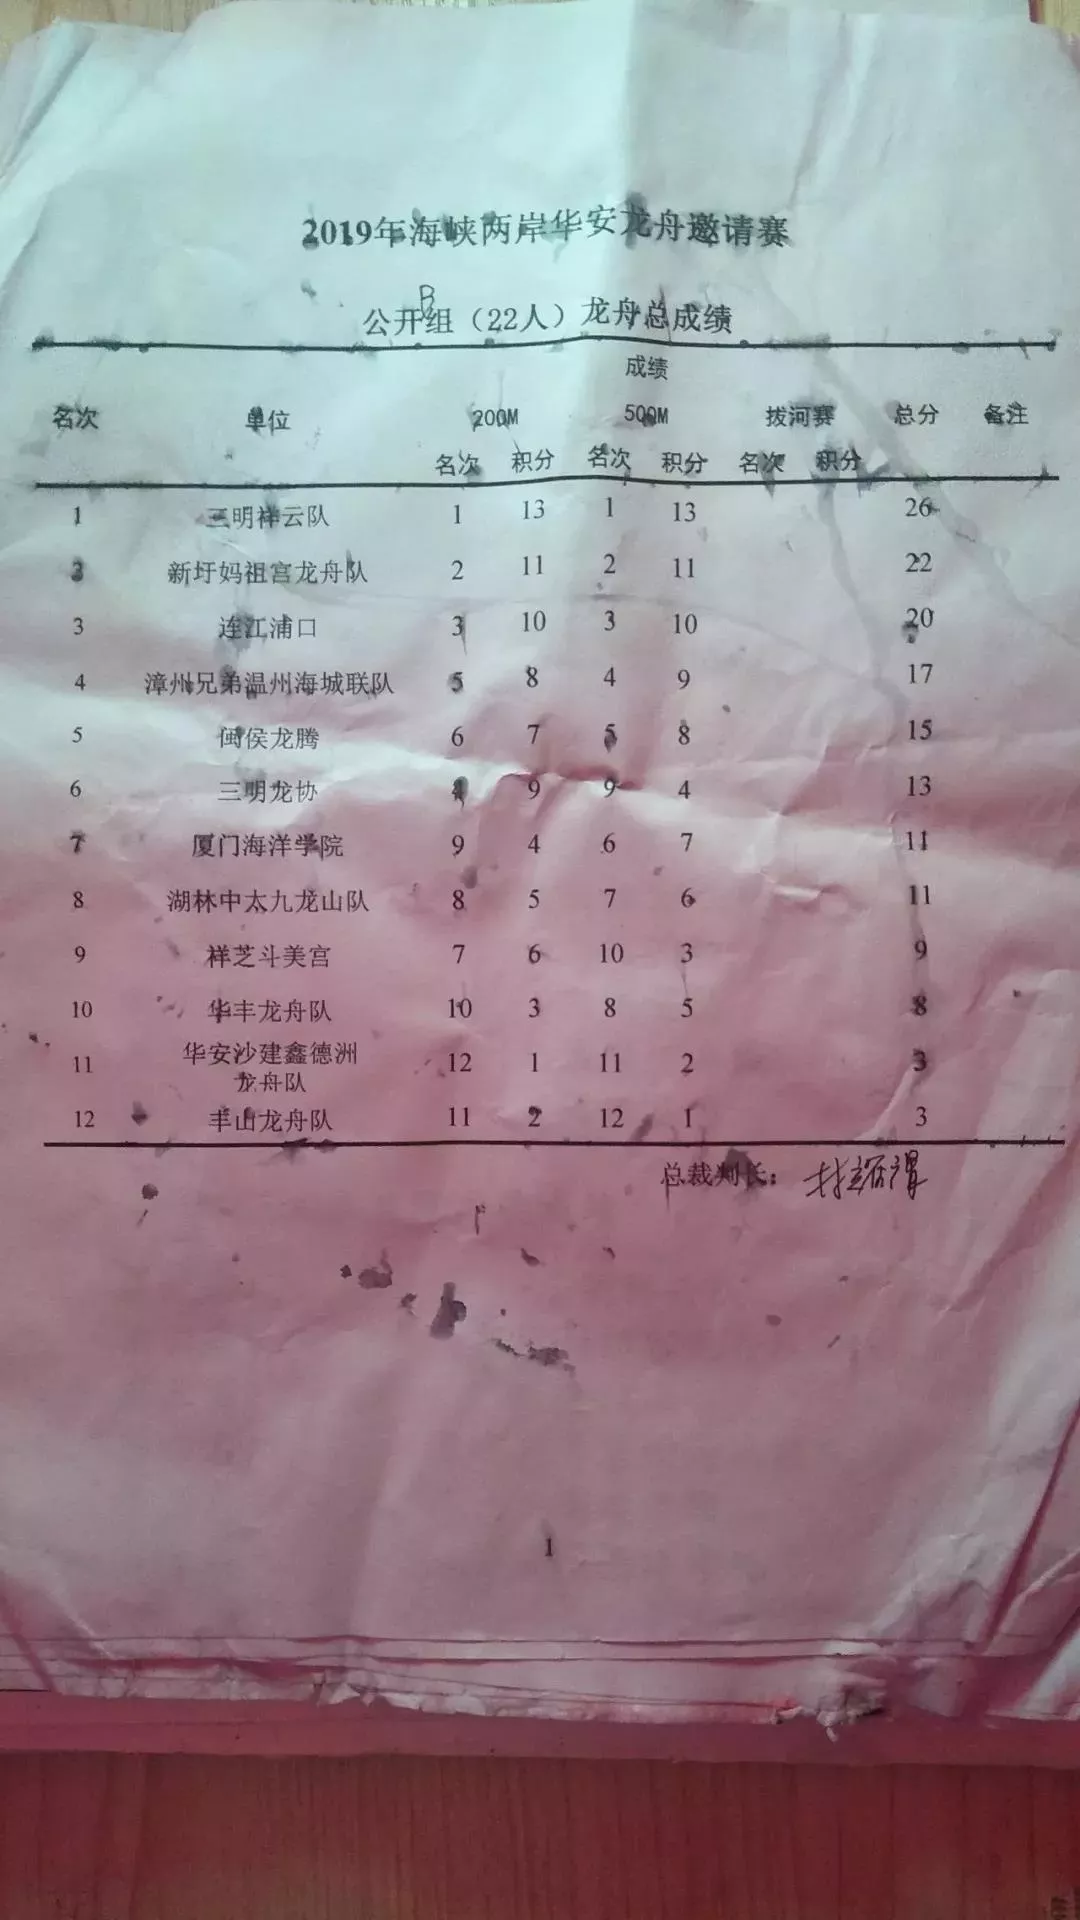 2019年海峡两岸华安龙舟邀请赛
公开B组（22人）龙舟总成绩
成绩
名次 单位 200M 500M 拔河赛 总分 备注
名次 积分 名次 积分 名次 积分
1 三明祥云队 1 13 1 13 26
2 新圩妈祖宫龙舟队 2 11 2 11 22
3 连江浦口 3 10 3 10 20
4 漳州兄弟温州海城联队 5 8 4 9 17
5 闽侯龙腾 6 7 5 8 15
6 三明龙协 4 9 9 4 13
7 厦门海洋学院 9 4 6 7 11
8 湖林中太九龙山队 8 5 7 6 11
9 祥芝斗美宫 7 6 10 3 9
10 华丰龙舟队 10 3 8 5 8
11 华安沙建鑫德洲 12 1 11 2 3
龙舟队
12 丰山龙舟队 11 2 12 1 3
总裁判长：
1